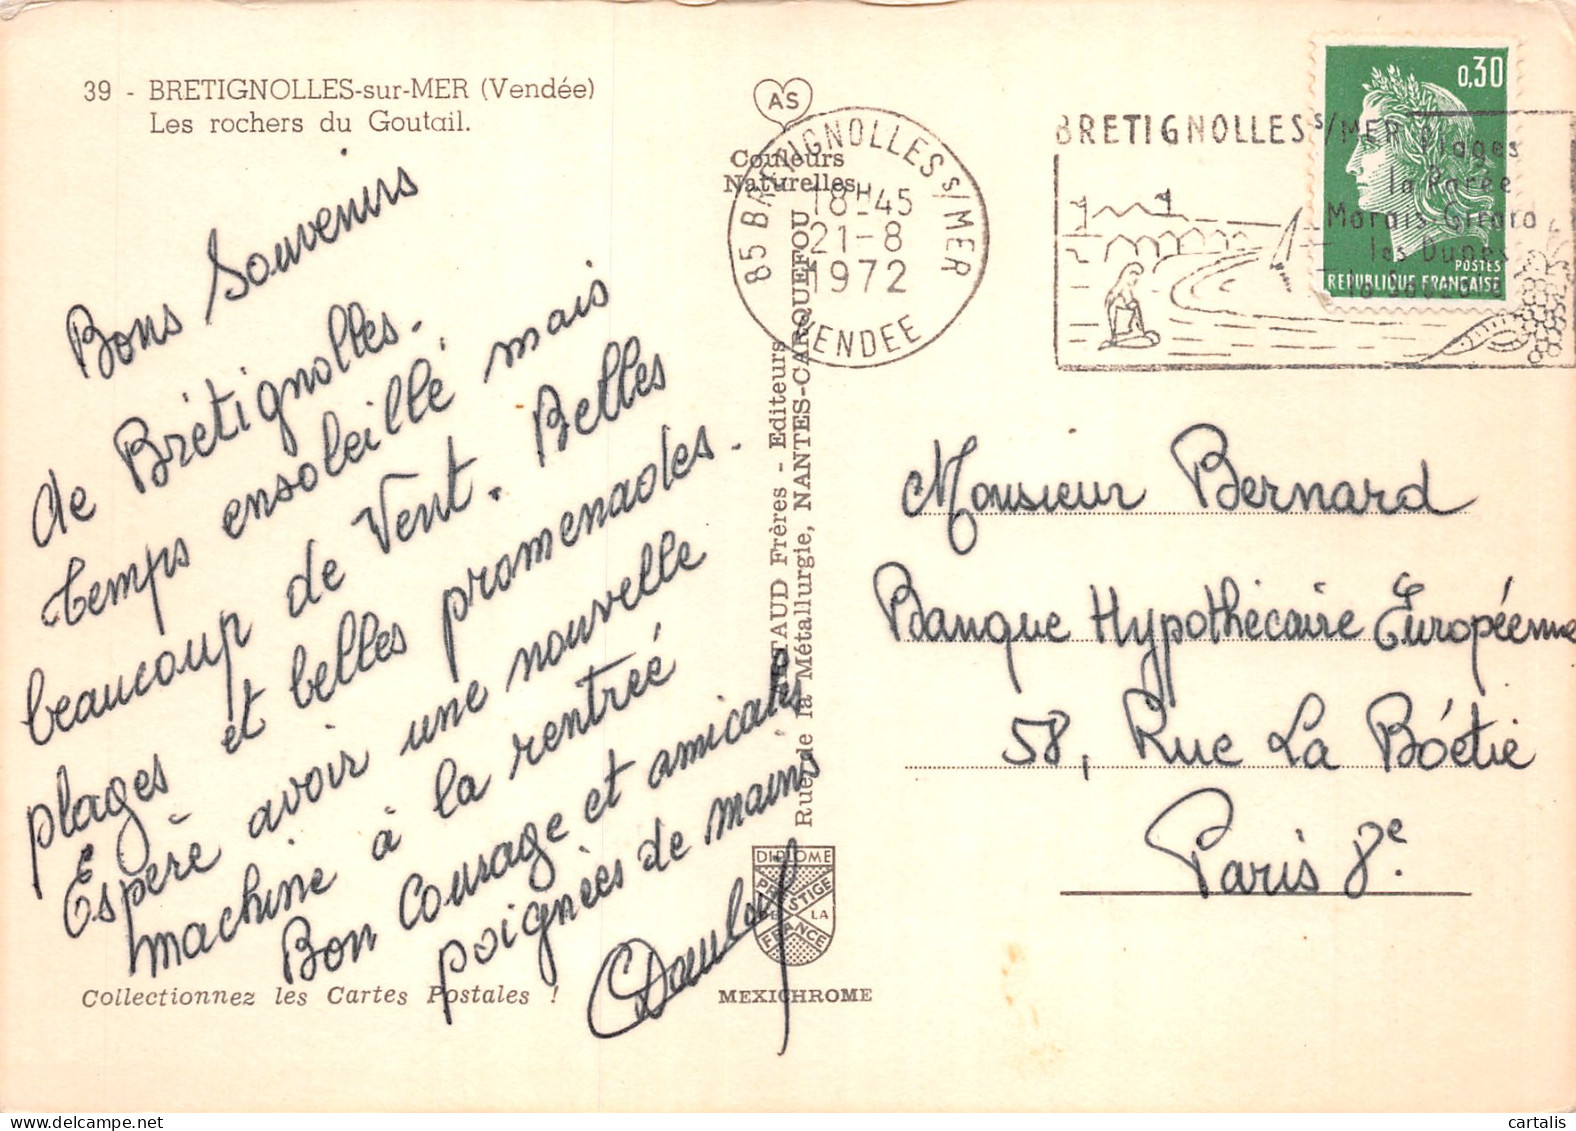 39 - BRETIGNOLLES-sur-MER (Vendée)
Les rochers du Goutail.
Bons Souvenirs
de Brétignolles.
temps ensoleillé, mais
beaucoup de Vent. Belles
plages et belles promenades.
Espère avoir une nouvelle
machine à la rentrée
Bon Courage et amicales
poignées de mains
Collectionnez les Cartes Postales !
AS
Couleurs
Naturelles
TAUD Frères - Editeurs
Rue de la Métallurgie, NANTES-CARQUEFOU
DIPLOME
PRESTIGE
DE LA
FRANCE
MEXICHROME
85 BRETIGNOLLES S/MER
18H45
21-8
1972
VENDEE
BRETIGNOLLES S/MER
Plages
la Parée
Marais Girard
les Dunes
la Sauzaie
0,30
POSTES
REPUBLIQUE FRANÇAISE
Monsieur Bernard
Banque Hypothécaire Européenne
58, Rue La Boétie
Paris 8e.
cartalis